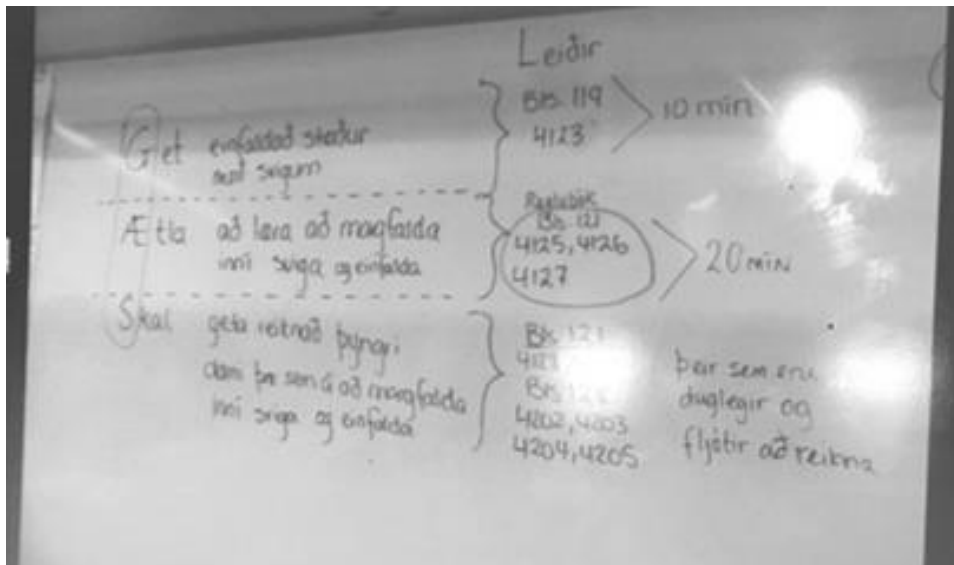 Leiðir
Get einfaldað stæður
með svigum
Bls. 119
4123
10 min
Ætla að læra að margfalda
inní sviga og einfalda
Bls. 121
4125, 4126
4127
20 min
Skal geta reiknað þyngri
dæmi þar sem á að margfalda
inní sviga og einfalda
Bls. 121
Bls.
4202, 4203
4204, 4205
þeir sem eru
duglegir og
fljótir að reikna